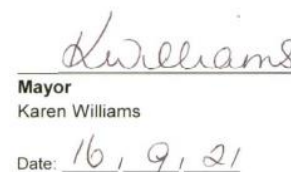 KWilliams
Mayor
Karen Williams
Date: 16, 9, 21